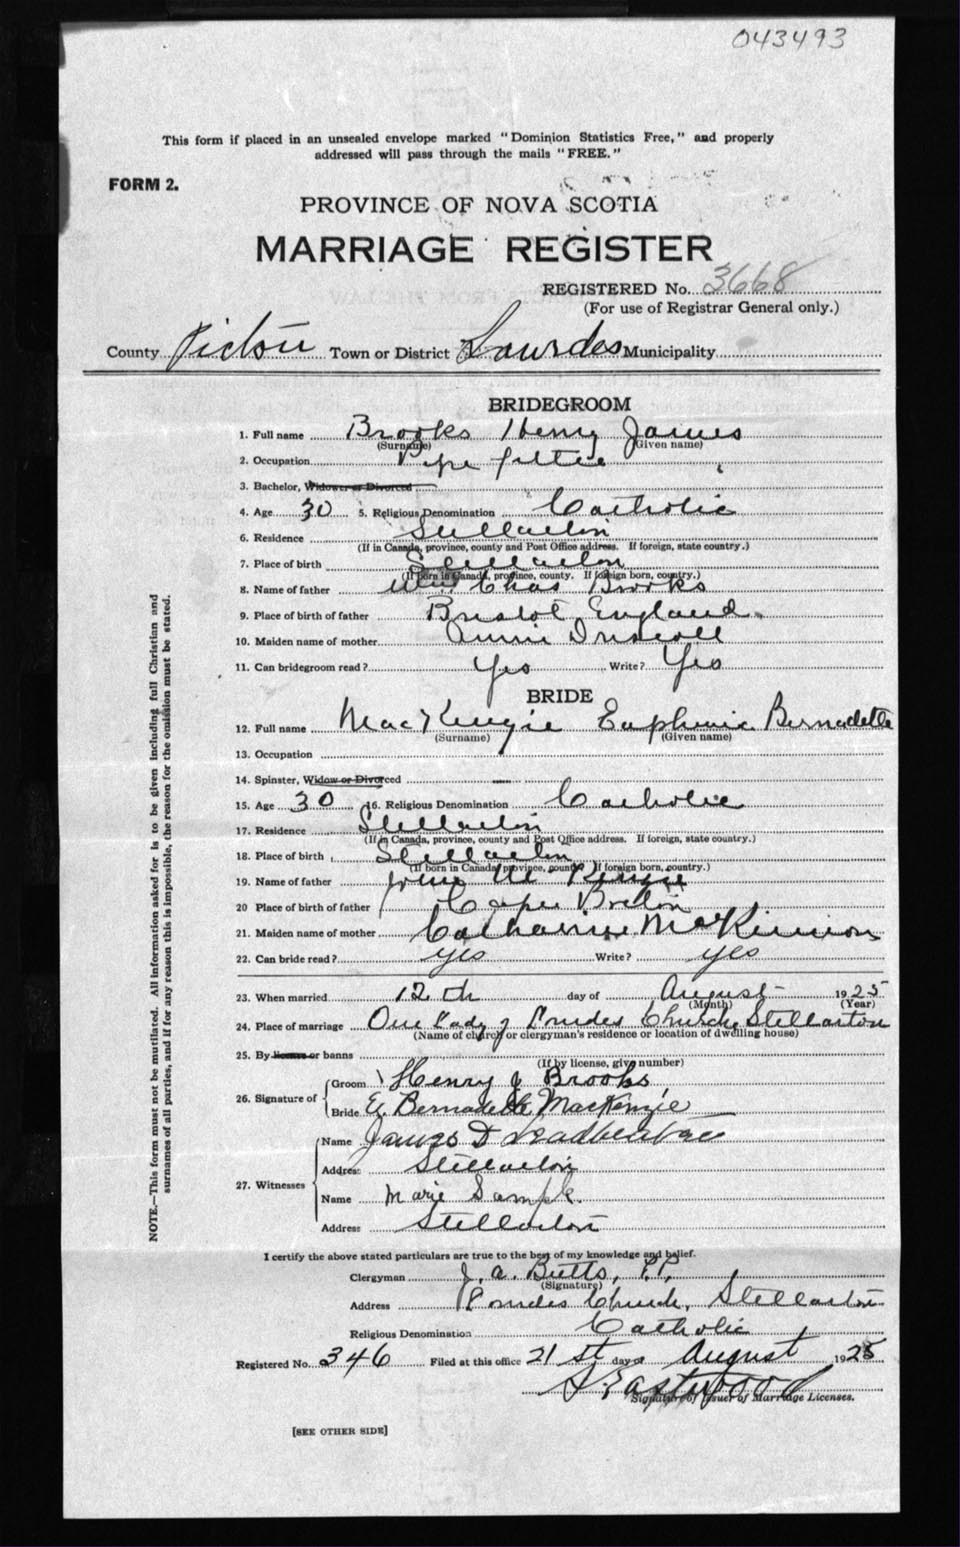 043493
This form if placed in an unsealed envelope marked "Dominion Statistics Free," and properly
addressed will pass through the mails "FREE."
FORM 2.
PROVINCE OF NOVA SCOTIA
MARRIAGE REGISTER
REGISTERED No. 3668
(For use of Registrar General only.)
County Pictou Town or District Lourdes Municipality
BRIDEGROOM
1. Full name Brooks Henry James
(Surname) (Given name)
2. Occupation Pipe fitter
3. Bachelor, Widower or Divorced
4. Age 30 5. Religious Denomination Catholic
6. Residence Stellarton
(If in Canada, province, county and Post Office address. If foreign, state country.)
7. Place of birth Stellarton
(If born in Canada, province, county. If foreign born, country.)
8. Name of father Chas Brooks
9. Place of birth of father Bristol, England.
10. Maiden name of mother Annie Driscoll
11. Can bridegroom read? Yes Write? Yes
BRIDE
12. Full name MacKenzie Euphemia Bernadette
(Surname) (Given name)
13. Occupation
14. Spinster, Widow or Divorced
15. Age 30 16. Religious Denomination Catholic
17. Residence Stellarton
(If in Canada, province, county and Post Office address. If foreign, state country.)
18. Place of birth Stellarton
(If born in Canada, province, county. If foreign born, country.)
19. Name of father John McKenzie
20 Place of birth of father Cape Breton
21. Maiden name of mother Catharine MacKinnon
22. Can bride read? yes Write? yes
23. When married 12th day of August 1925
(Month) (Year)
24. Place of marriage Our Lady of Lourdes Church, Stellarton
(Name of church or clergyman's residence or location of dwelling house)
25. By license or banns
(If by license, give number)
26. Signature of
Groom Henry J Brooks
Bride E. Bernadette MacKenzie
27. Witnesses
Name James D
Address Stellarton
Name Marie Sample
Address Stellarton
I certify the above stated particulars are true to the best of my knowledge and belief.
Clergyman J. A. Butts, P.P.
(Signature)
Address Lourdes Church, Stellarton
Religious Denomination Catholic
Registered No. 346 Filed at this office 21st day of August 1925
Eastwood
Signature of Issuer of Marriage Licenses.
[SEE OTHER SIDE]
NOTE.—This form must not be mutilated. All information asked for is to be given including full Christian and
surnames of all parties, and if for any reason this is impossible, the reason for the omission must be stated.